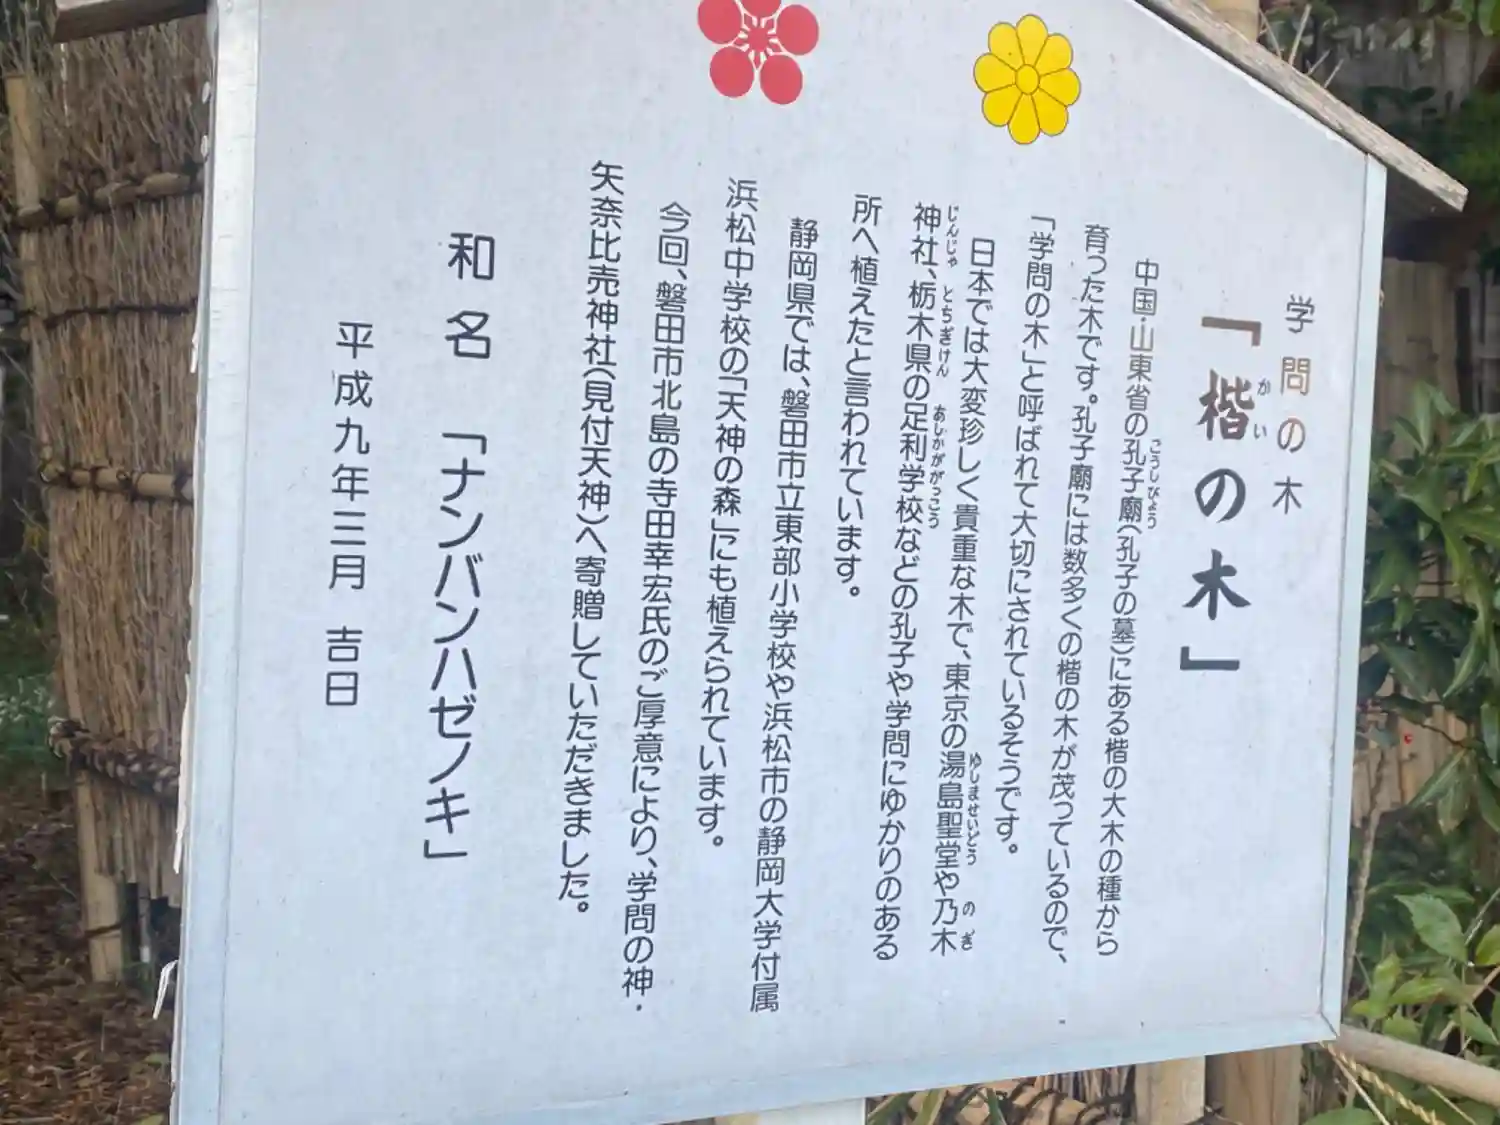 学問の木
「楷の木」
かい
中国・山東省の孔子廟(孔子の墓)にある楷の大木の種から
こうしびょう
育った木です。孔子廟には数多くの楷の木が茂っているので、
「学問の木」と呼ばれて大切にされているそうです。
日本では大変珍しく貴重な木で、東京の湯島聖堂や乃木
ゆしませいどう のぎ
神社、栃木県の足利学校などの孔子や学問にゆかりのある
じんじゃ とちぎけん あしかががっこう
所へ植えたと言われています。
静岡県では、磐田市立東部小学校や浜松市の静岡大学付属
浜松中学校の「天神の森」にも植えられています。
今回、磐田市北島の寺田幸宏氏のご厚意により、学問の神・
矢奈比売神社(見付天神)へ寄贈していただきました。
和名 「ナンバンハゼノキ」
平成九年三月 吉日